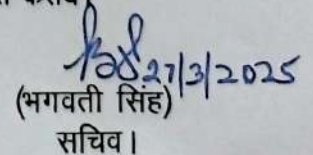 27/3/2025
(भगवती सिंह)
सचिव।